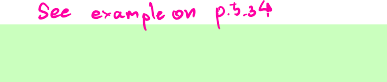 See example on p.5.34